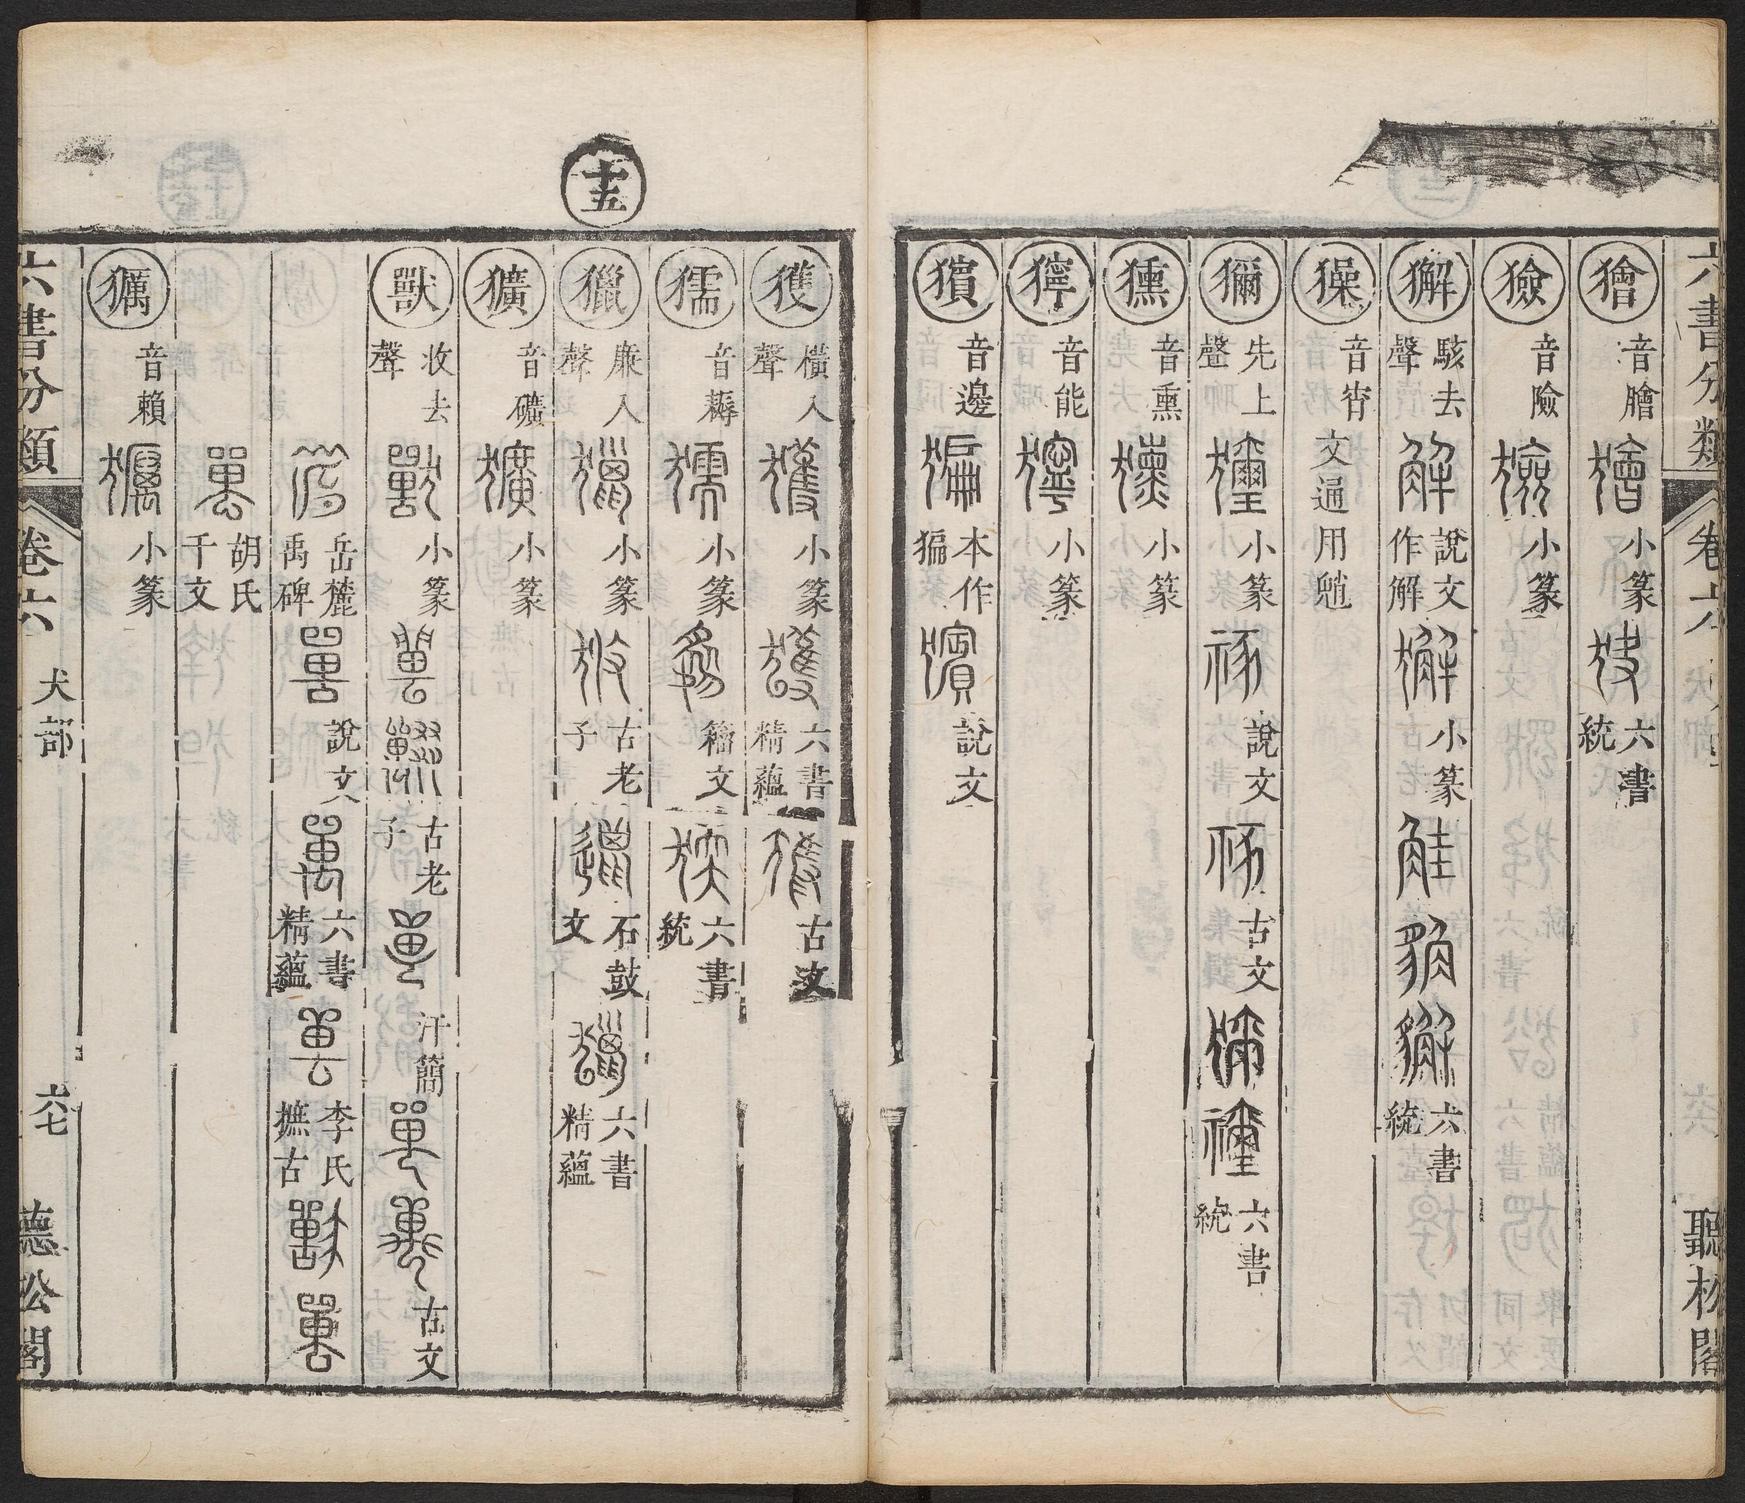 六書分類 卷六 聽松閣
獪 音膾 小篆 六書統
獫 音險 小篆
獬 駭去聲 說文作解 小篆 六書統
音宵 文通用魈
獮 先上聲 小篆 說文 古文 六書統
獯 音熏 小篆
獰 音能 小篆
獱 音邊 本作猵 說文
十五
獲 橫入聲 小篆 六書精蘊 古文
獳 音耨 小篆 籀文 六書統
獵 廉入聲 小篆 古老子 石鼓文 六書精蘊
獷 音礦 小篆
獸 收去聲 小篆 古老子 汗簡 古文
岳麓禹碑 說文 六書精蘊 李氏摭古
胡氏千文
音賴 小篆
六書分類 卷六 犬部 六七 聽松閣